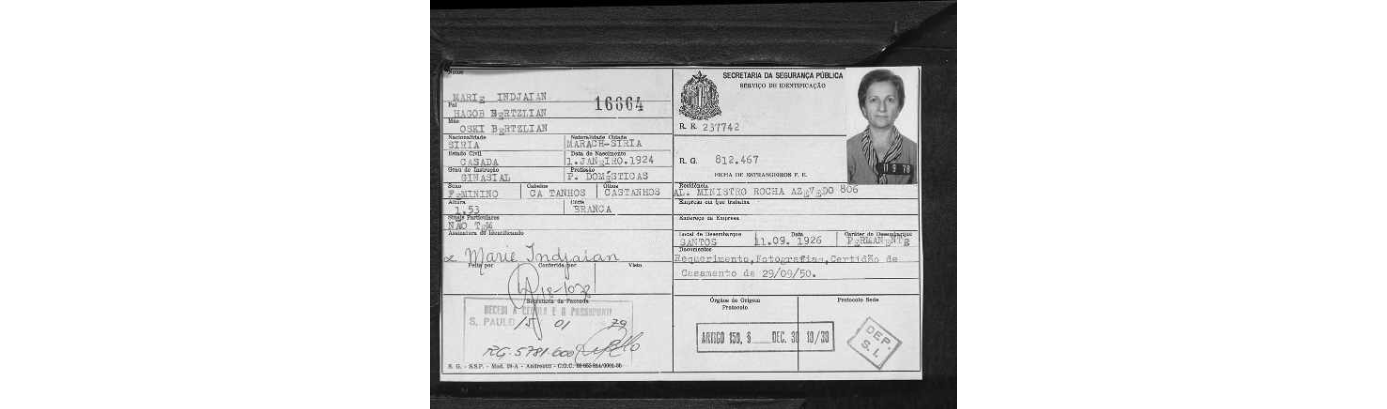 Nome
MARIE INDJAIAN
16664
Pai
HAGOB BERTZLIAN
Mãe
OSKI BERTZLIAN
Nacionalidade Naturalidade Cidade
SIRIA MARACH-SIRIA
Estado Civil Data do Nascimento
CASADA 1.JANEIRO.1924
Grau de Instrução Profissão
GINASIAL P. DOMÉSTICAS
Sexo Cabelos Olhos
FEMININO CA TANHOS CASTANHOS
Altura Cútis
1.53 BRANCA
Sinais Particulares
NÃO TEM
Assinatura do Identificado
x Marie Indjaian
Feita por Conferida por Visto
18-1078
Assinatura da Pessoa
RECEBI A CÉDULA E O PASSAPORTE
S. PAULO 15 01 79
RG. 5781 600
S. G. - S.S.P. - Mod. 19-A - Andreotti - C.G.C.
SECRETARIA DA SEGURANÇA PÚBLICA
SERVIÇO DE IDENTIFICAÇÃO
R. E. 237742
R. G. 812.467
FICHA DE ESTRANGEIROS P. E.
11 9 78
Residência
AL. MINISTRO ROCHA AZEVEDO 806
Empresa em que trabalha
Endereço da Empresa
Local de Desembarque Data Caráter do Desembarque
SANTOS 11.09. 1926 PERMANENTE
Documentos
Requerimento,Fotografias,Certidão de
Casamento de 29/09/50.
Órgãos de Origem Protocolo Sede
Protocolo
ARTIGO 150, § DEC. 30 10/38
DEP.
S.I.